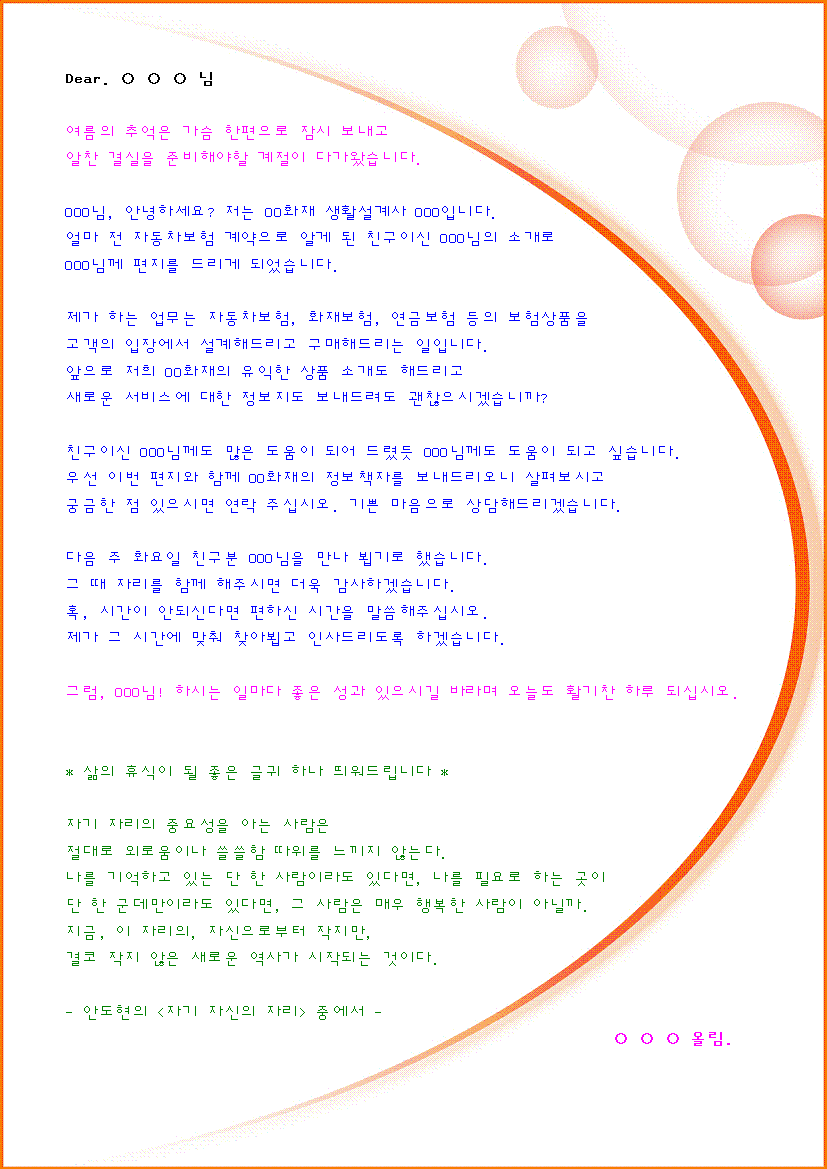 Dear. ○ ○ ○ 님
여름의 추억은 가슴 한편으로 잠시 보내고
알찬 결실을 준비해야할 계절이 다가왔습니다.
○○○님, 안녕하세요? 저는 ○○화재 생활설계사 ○○○입니다.
얼마 전 자동차보험 계약으로 알게 된 친구이신 ○○○님의 소개로
○○○님께 편지를 드리게 되었습니다.
제가 하는 업무는 자동차보험, 화재보험, 연금보험 등의 보험상품을
고객의 입장에서 설계해드리고 구매해드리는 일입니다.
앞으로 저희 ○○화재의 유익한 상품 소개도 해드리고
새로운 서비스에 대한 정보지도 보내드려도 괜찮으시겠습니까?
친구이신 ○○○님께도 많은 도움이 되어 드렸듯 ○○○님께도 도움이 되고 싶습니다.
우선 이번 편지와 함께 ○○화재의 정보책자를 보내드리오니 살펴보시고
궁금한 점 있으시면 연락 주십시오. 기쁜 마음으로 상담해드리겠습니다.
다음 주 화요일 친구분 ○○○님을 만나 뵙기로 했습니다.
그 때 자리를 함께 해주시면 더욱 감사하겠습니다.
혹, 시간이 안되신다면 편하신 시간을 말씀해주십시오.
제가 그 시간에 맞춰 찾아뵙고 인사드리도록 하겠습니다.
그럼, ○○○님! 하시는 일마다 좋은 성과 있으시길 바라며 오늘도 활기찬 하루 되십시오.
* 삶의 휴식이 될 좋은 글귀 하나 띄워드립니다 *
자기 자리의 중요성을 아는 사람은
절대로 외로움이나 쓸쓸함 따위를 느끼지 않는다.
나를 기억하고 있는 단 한 사람이라도 있다면, 나를 필요로 하는 곳이
단 한 군데만이라도 있다면, 그 사람은 매우 행복한 사람이 아닐까.
지금, 이 자리의, 자신으로부터 작지만,
결코 작지 않은 새로운 역사가 시작되는 것이다.
- 안도현의 <자기 자신의 자리> 중에서 -
○ ○ ○ 올림.